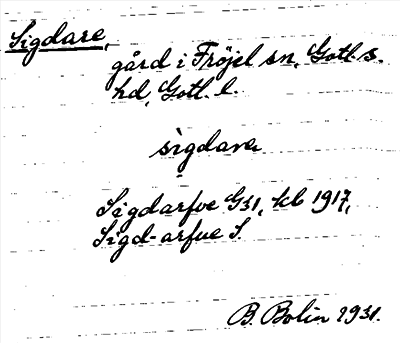 Sigdare,
gård i Fröjel sn, Gotl. s.
hd, Gotl. l.
sìgdara
Sigdarfve G31, kb 1917,
Sigd-arfue S.
B. Bolin 1931.